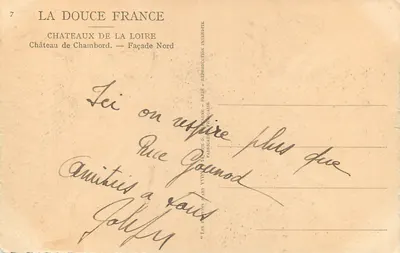 7
LA DOUCE FRANCE
CHATEAUX DE LA LOIRE
Château de Chambord. — Façade Nord
Ici on respire plus que
Rue Gounod
Amitiés a tous